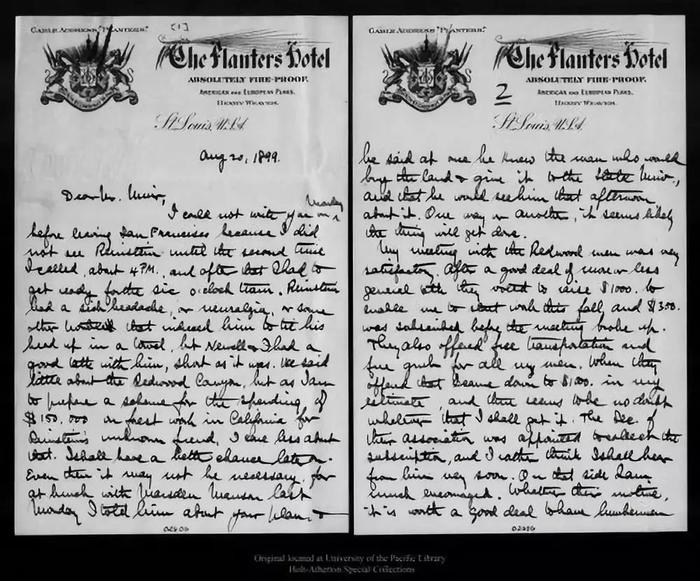 CABLE ADDRESS "PLANTERS."
[1]
The Planters Hotel
ABSOLUTELY FIRE-PROOF.
AMERICAN AND EUROPEAN PLANS.
HENRY WEAVER.
St. Louis, U.S.A.
Aug 20, 1899.
Dear Mr. Muir,
I could not write you on Monday
before leaving San Francisco because I did
not see Reinstein until the second time
I called, about 4 P.M., and after that I had to
get ready for the six o'clock train. Reinstein
had a sick headache, or neuralgia, or some
other that induced him to tie his
head up in a towel, but Newell & I had a
good talk with him, short as it was. We said
little about the Redwood Canyon, but as I am
to prepare a scheme for the spending of
$150,000 on forest work in California for
Reinstein's unknown friend, I care less about
that. I shall have a better chance later on.
Even then it may not be necessary, for
at lunch with Marsden Manson last
Monday I told him about your plan, &
02806
CABLE ADDRESS "PLANTERS."
2
The Planters Hotel
ABSOLUTELY FIRE-PROOF.
AMERICAN AND EUROPEAN PLANS.
HENRY WEAVER.
St. Louis, U.S.A.
he said at once he knew the man who would
buy the land & give it to the State Univ.,
and that he would see him that afternoon
about it. One way or another, it seems likely
the thing will get done.
My meeting with the Redwood men was very
satisfactory. After a good deal of more or less
general talk they voted to raise $1000. to
enable me to start work this fall, and $350.
was subscribed before the meeting broke up.
They also offered free transportation and
free grub for all my men. When they
offered that I came down to $1000. in my
estimate, and there seems to be no doubt
whatever that I shall get it. The Sec. of
their association was appointed to collect the
subscription, and I rather think I shall hear
from him very soon. On that side I am
much encouraged. Whatever their motive,
it is worth a good deal to have lumbermen
Original located at University of the Pacific Library
Holt-Atherton Special Collections